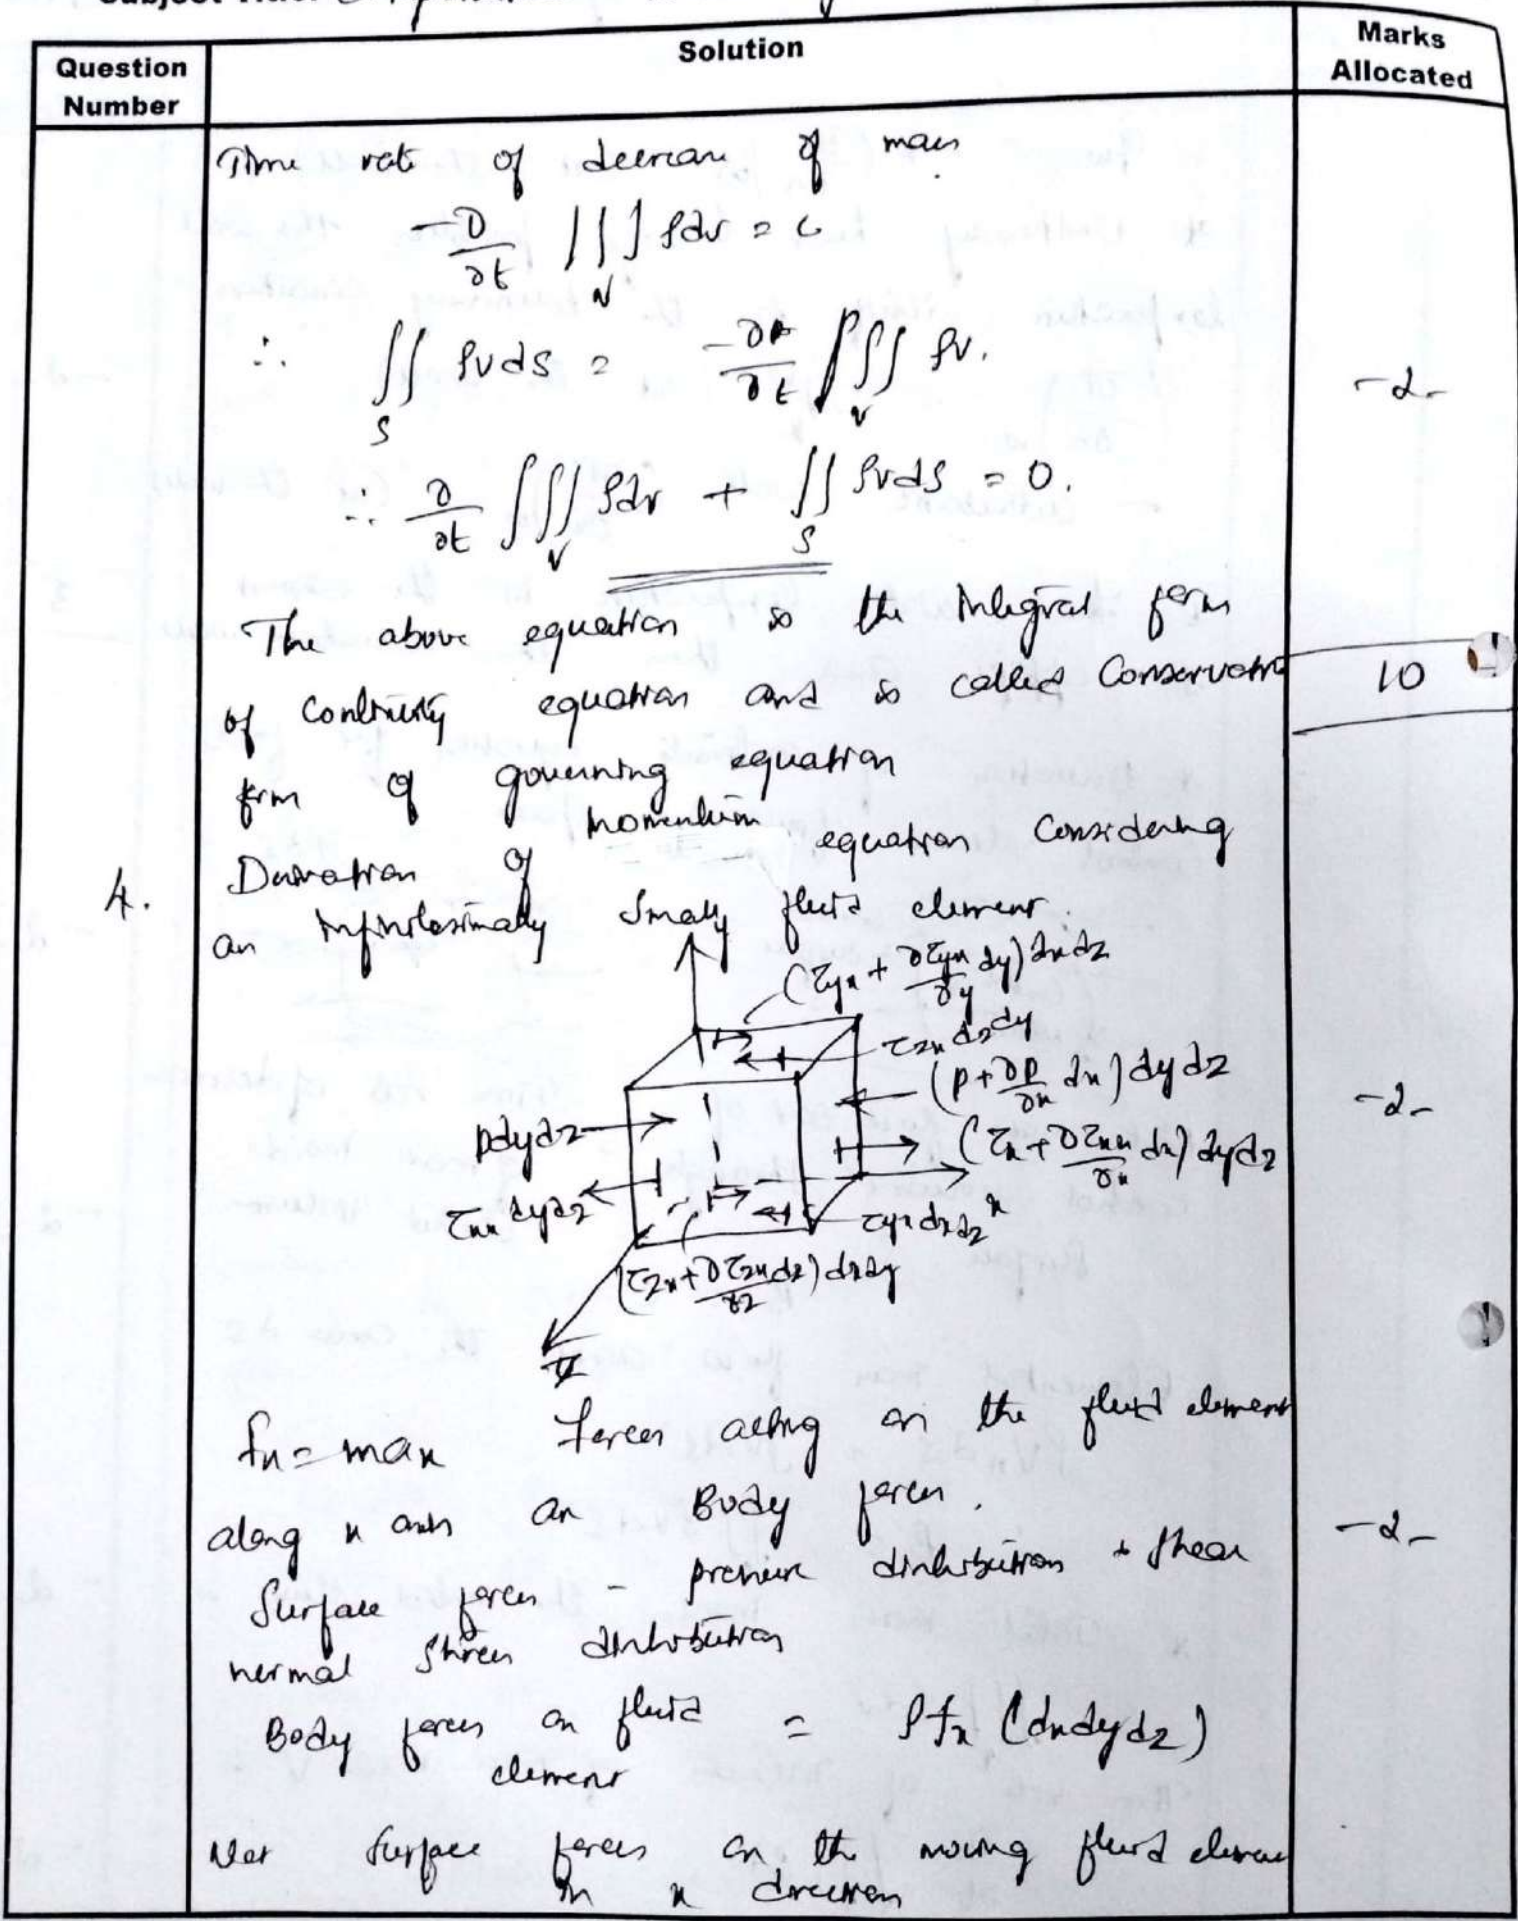 Question Number
Solution
Marks Allocated
Time rate of decrease of mass
-∂/∂t ∭_V ρdv = c
∴ ∬_S ρvds = -∂/∂t ∭_V ρv.
-2-
∴ ∂/∂t ∭_V ρdv + ∬_S ρvds = 0.
The above equation is the integral form
of continuity equation and is called Conservation
10
form of governing equation
4.
Derivation of momentum equation considering
an infinitesimally small fluid element.
(τyx + ∂τyx/∂y dy) dxdz
τzx dzdy
(p + ∂p/∂x dx) dydz
-2-
pdydz
(τx + ∂τxx/∂x dx) dydz
τxx dydz
x
τyx dxdz
(τzx + ∂τzx/∂z dz) dxdy
z
fx = max Forces acting on the fluid element
along x axis are Body forces.
-2-
Surface forces - pressure distribution + shear
normal stress distribution
Body forces on fluid element = ρfx (dxdydz)
Net surface forces on the moving fluid element
in x direction